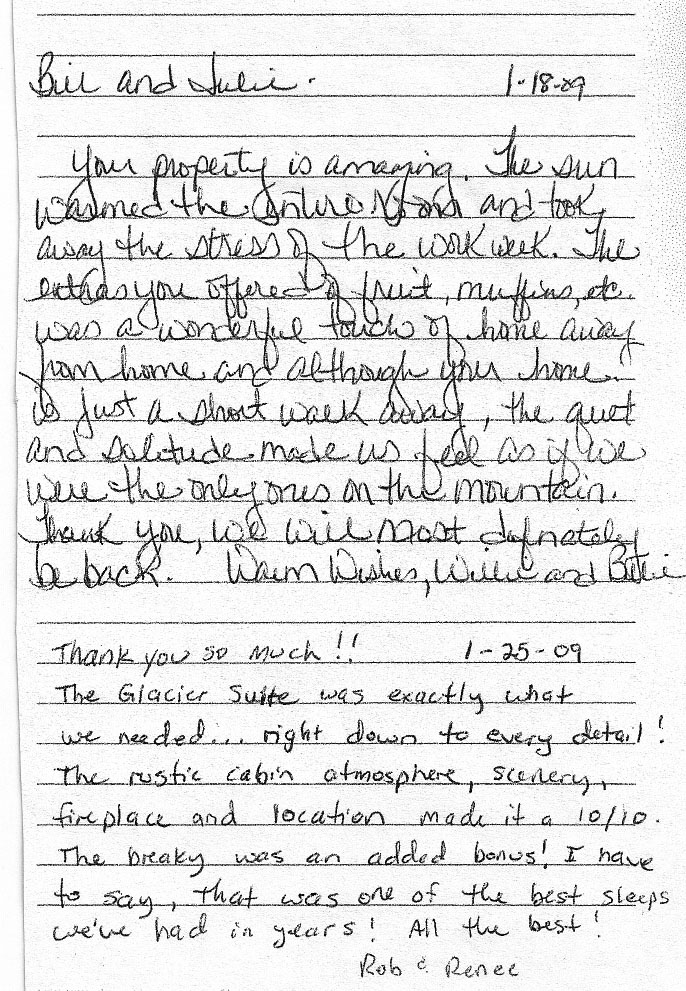 Bill and Julie. 1-18-09
Your property is amazing. The sun
warmed the entire room and took
away the stress of the work week. The
extras you offered of fruit, muffins, etc.
was a wonderful touch of home away
from home and although your home
is just a short walk away, the quiet
and solitude made us feel as if we
were the only ones on the mountain.
Thank you, we will most definately
be back. Warm Wishes, Willie and Billie
Thank you so much!! 1-25-09
The Glacier Suite was exactly what
we needed... right down to every detail!
The rustic cabin atmosphere, scenery,
fireplace and location made it a 10/10.
The breaky was an added bonus! I have
to say, that was one of the best sleeps
we've had in years! All the best!
Rob & Renee